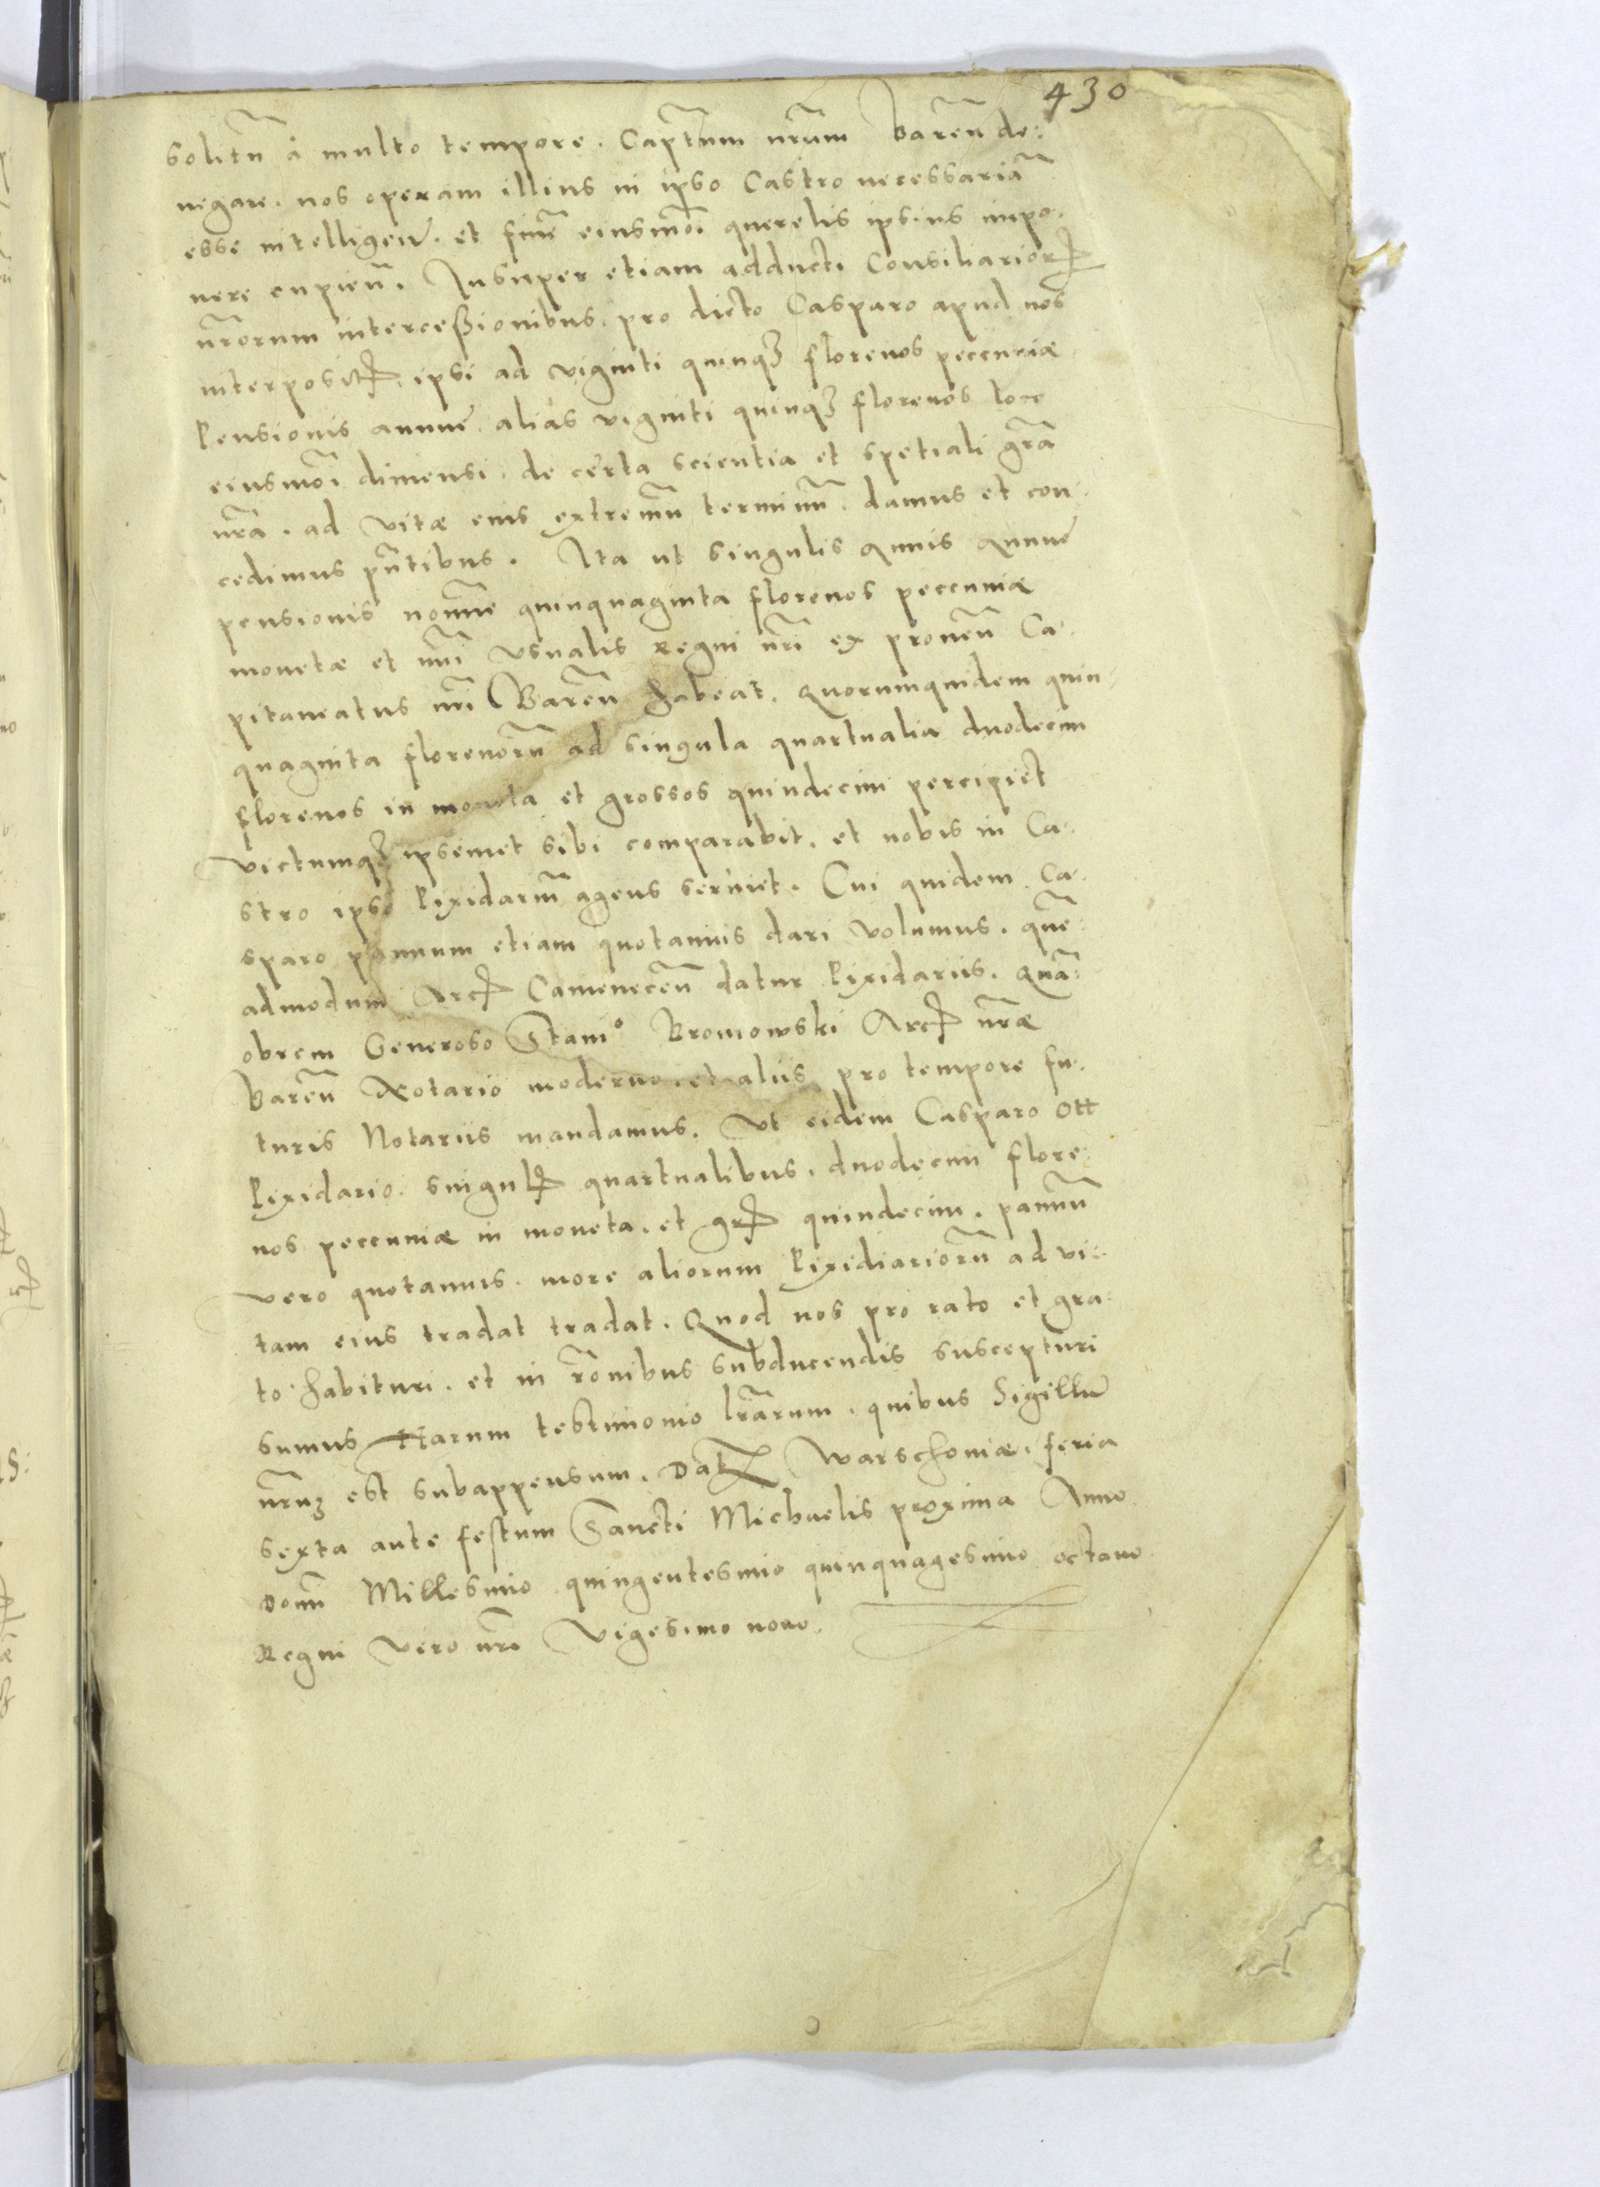 430
solitũ à multo tempore. Captũm nr̃um Barẽn de:
negare. nos operam illius in ipso Castro necessariã
esse intelligeñ. et finẽ eiusmõi querelis ipsius impo.
nere cupieñ. Insuper etiam adducti Consiliarior̃
nr̃orum intercessionibus. pro dicto Casparo apud nos
interposit̃. ipsi ad viginti quinqȝ florenos peccuniæ
Pensionis annuę. alias viginti quinqȝ florenos loco
eiusmõi dimensi. de certa scientia et spetiali grã
nr̃a. ad vitæ eius extremũ terminũ. damus et con.
cedimus pñtibus. Ita ut singulis annis annuę
pensionis nomine quinquaginta florenos peccuniæ
monetæ et nũi usualis Regni nr̃i ex proventũ Ca.
pitaneatus nr̃i Barẽn habeat. Quorumquidem quin.
quaginta florenorũ ad singula quartualia duodecim
florenos in moneta et grossos quindecim percipiet
victumqȝ ipsemet sibi comparabit. et nobis in Ca.
stro ipso Pixidariũ agens serviet. Cui quidem Ca.
sparo pannum etiam quotannis dari volumus. quẽ
admodum Arc̃ Camenecẽn datur Pixidariis. Quã:
obrem Generoso Stani° Bromowski Arc̃ nr̃æ
Barẽn Notario moderno. et aliis pro tempore fu.
turis Notariis mandamus. Ut eidem Casparo Ott
Pixidario. singul̃ quartualibus. duodecim flore
nos peccuniæ in moneta. et gr̃ quindecim. pannũ
vero quotannis. more aliorum Pixidiariorũ ad vi.
tam eius tradat tradat. Quod nos pro rato et gra
to habituri. et in rõnibus subducendis suscepturi
sumus Harum testimonio lr̃arum. quibus Sigillũ
nr̃uȝ est subappensum. Dat̃ Warschoviæ. feria
sexta ante festum Sancti Michaelis proxima Anno
Domĩ Millesimo quingentesimo quinquagesimo octavo
Regni vero nr̃i Vigesimo nono.